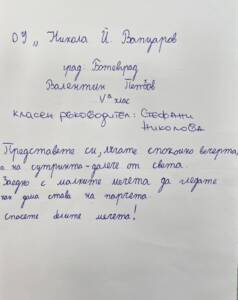 ОУ „ Никола Й. Вапцаров
град Ботевград
Валентин Петков
Vᵃ клас
класен ръководител: Стефани
Николова
Представете си, лягате спокойно вечерта,
а на сутринта - далече от света.
Заедно с малките мечета да гледате
как дома става на парчета.
спасете белите мечета!